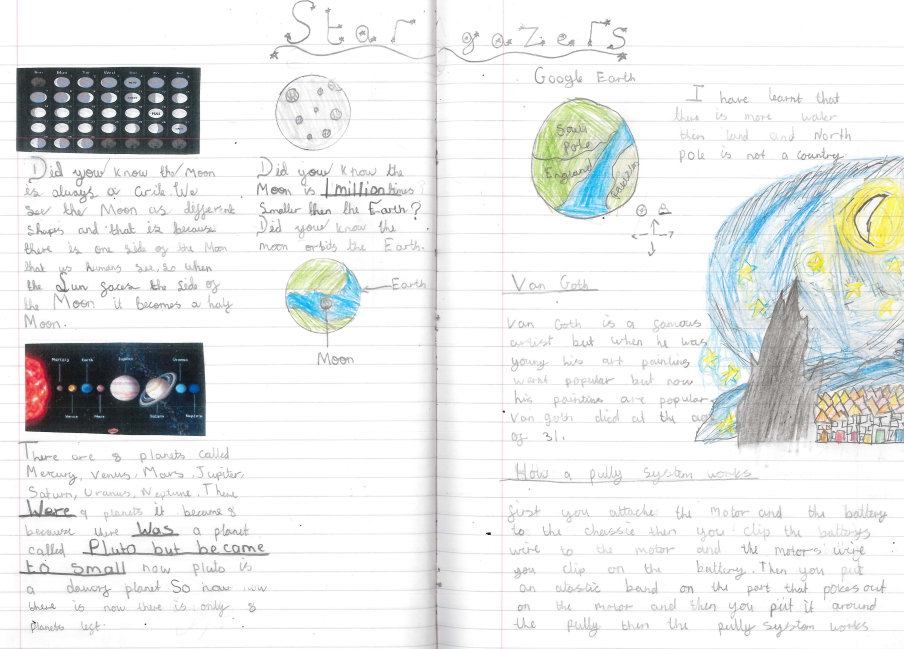 Star gazers
Did you know the Moon
is always a circle We
see the Moon as different
shapes and that is because
there is one side of the Moon
that us humans see, so when
the Sun faces the side of
the Moon it becomes a half
Moon.
Did you know the
Moon is 1 million times
Smaller then the Earth?
Did you know the
moon orbits the Earth.
Earth
Moon
Mercury
Earth
Jupiter
Uranus
Venus
Mars
Saturn
Neptune
There are 8 planets called
Mercury, Venus, Mars, Jupiter,
Saturn, Uranus, Neptune, There
Were 9 planets it became 8
because there Was a planet
called Pluto but became
to small now pluto is
a dawrf planet So now now
there is now there is only 8
planets left.
Google Earth
South
Pole
England
I have learnt that
there is more water
then land and North
pole is not a country.
Van Goth
Van Goth is a famous
artist but when he was
young his art painting
wernt popular but now
his painting are popular
Van goth died at the age
of 31.
How a pully system works
first you attache the motor and the battery
to the chassie then you clip the batterys
wire to the motor and the motor's wire
you clip on the battery. Then you put
an alastic band on the part that pokes out
on the motor and then you put it around
the pully then the pully system works